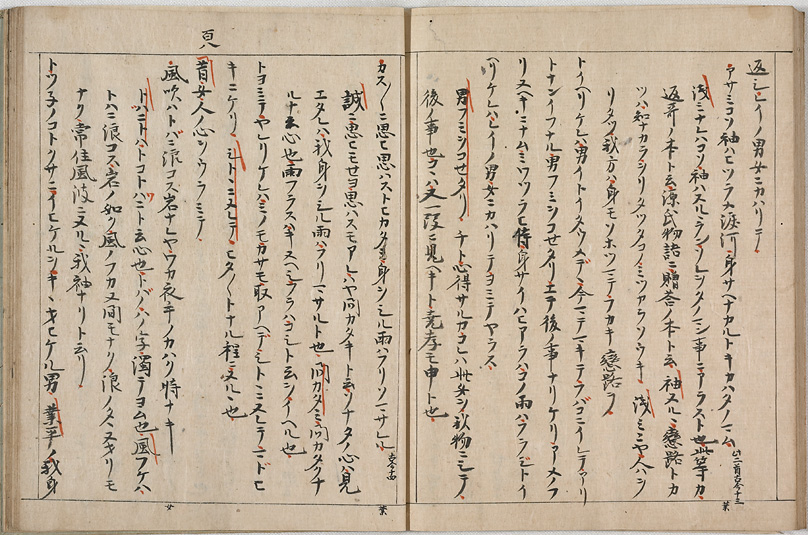 返シレイノ男女ニカハリテ
アサミコソ袖ハヒツラメ涙河身サヘナカルトキカハタノマム 此二首古今十三
浅ミナレハコソ袖ハヌルラン事ニアラスト也此等カ
返哥ノ本ト云源氏物語ニ贈答ノ本ト云袖ヌルヽ恋路トカ
ツハ知ナカラヲリタツタコノミツカラソウキ 浅ミニヤ人ハヲ
リタツ我方ハ身モソホツマテフカキ恋路ヲ
トイヘリケレハ男イトイタウメデヽ今マテマキテフバコニイレテアリ
トナンイフナル男フミヲコセタリエテ後ノ事ナリケリアメノフ
リヌヘキニナムミワツラヒ侍身サイハヒアラハコノ雨ハフラジトイ
ヘリケレハレイノ男女ニカハリテヨミテヤラス
男フミヲコセタリ チト心得サルカコレハ此女ヲ我物ニシテノ
後ノ事也段ニ見ヘキト堯孝モ申ト也
葉
百八
カスヽヽニ思ヒ思ハストヒカタミ身ヲシル雨ハフリソマサレル 古今十四
誠ニ思ヒモセヨ思ハスモアレハヤ問カタキト云ソナタノ心ハ見
エタレハ我身ヲシル雨ハフリマサルト也 問カタミ問カタクナ
ルナ云心也雨フラスハキヌヘシフラハコシト云ヲイヘル也
トヨミテヤレリケレハミノモカサモ取アヘデシトヽニヌレテマドヒ
キニケリ シトヽニヌレテ ヒタヽヽトナル程ニヌルヽ也
昔女人ノ心ヲウラミテ
風吹ハトバニ浪コス岩ナレヤワカ衣手ノカハク時ナキ
トハニトハトコトハニト云心也トバノ字濁テヨム也 風フケハ
トハニ浪コス岩ノ如ク風ノフカヌ間モナク浪ノタヽヌキリモ
ナク常住風波ニヌルヽ我袖ナリト云リ
トツネノコトクサニイヒケルヲキヽオヒケル男 業平ノ我身
葉
女